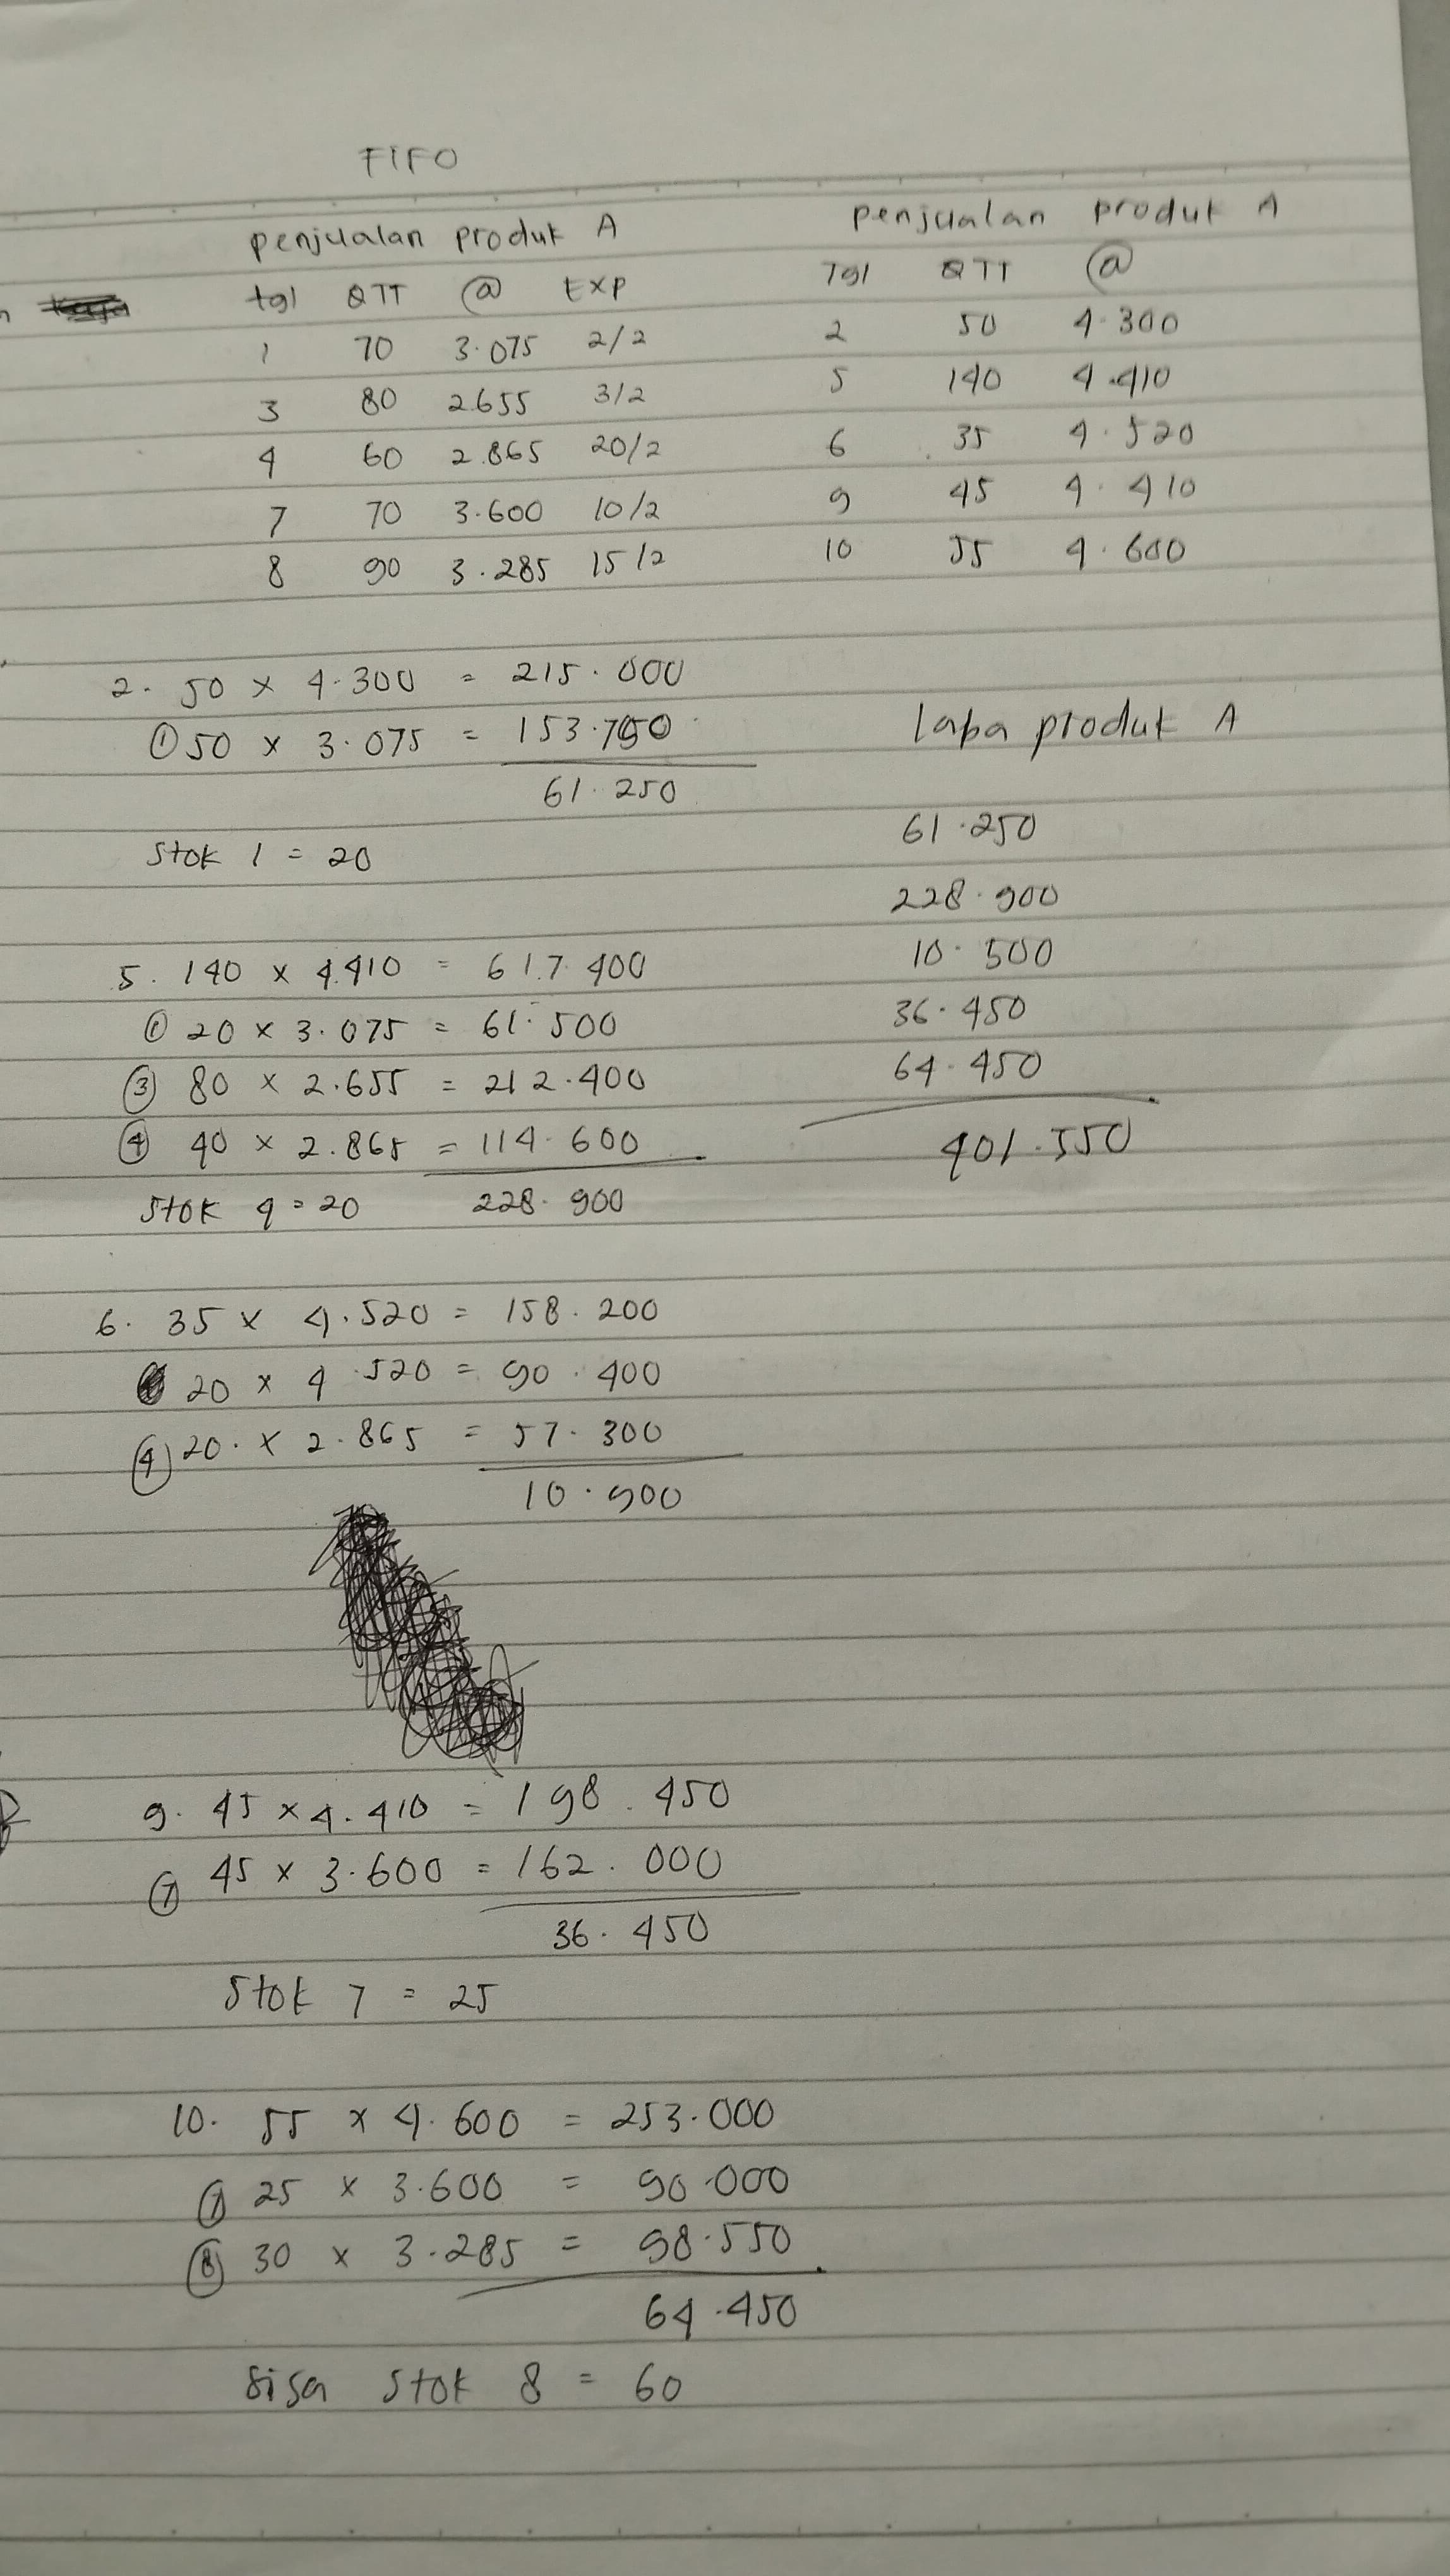 FIFO
penjualan produk A
tgl QTT @ EXP
1 70 3.075 2/2
3 80 2.655 3/2
4 60 2.865 20/2
7 70 3.600 10/2
8 90 3.285 15/2
penjualan produk A
Tgl QTT @
2 50 4.300
5 140 4.410
6 35 4.520
9 45 4.410
10 55 4.600
2. 50 x 4.300 = 215.000
① 50 x 3.075 = 153.750
61.250
Stok 1 = 20
5. 140 x 4.410 = 617.400
① 20 x 3.075 = 61.500
③ 80 x 2.655 = 212.400
④ 40 x 2.865 = 114.600
Stok 4 = 20 228.900
6. 35 x 4.520 = 158.200
20 x 4.520 = 90.400
④ 20. x 2.865 = 57.300
10.900
9. 45 x 4.410 = 198.450
⑦ 45 x 3.600 = 162.000
36.450
Stok 7 = 25
10. 55 x 4.600 = 253.000
⑦ 25 x 3.600 = 90.000
⑧ 30 x 3.285 = 98.550
64.450
Sisa Stok 8 = 60
laba produk A
61.250
228.900
10.500
36.450
64.450
401.550